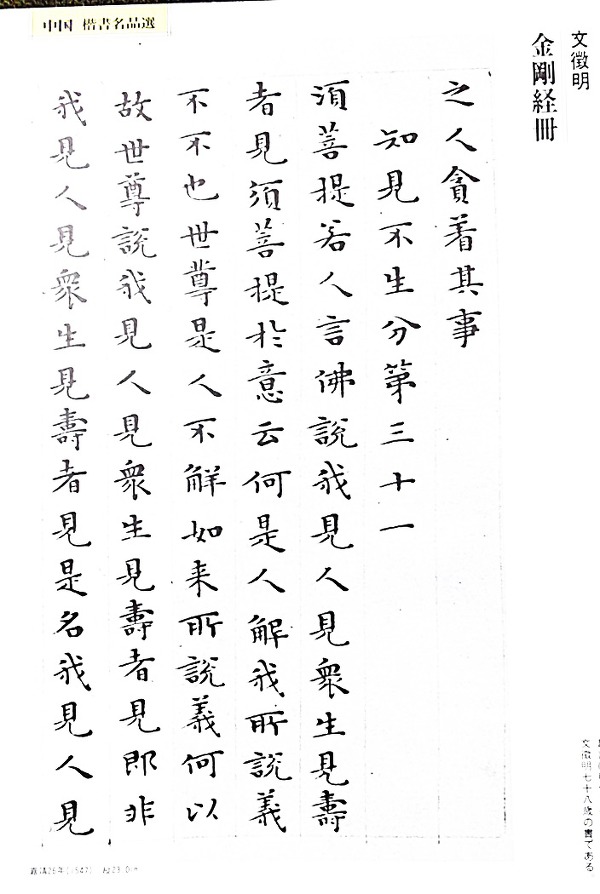 中国 楷書名品選
文徴明
金剛経冊
之人貪着其事
知見不生分第三十一
須菩提若人言佛說我見人見衆生見壽
者見須菩提於意云何是人解我所說義
不不也世尊是人不解如来所說義何以
故世尊說我見人見衆生見壽者見即非
我見人見衆生見壽者見是名我見人見
文徴明七十八歳の書である
嘉靖26年(1547)